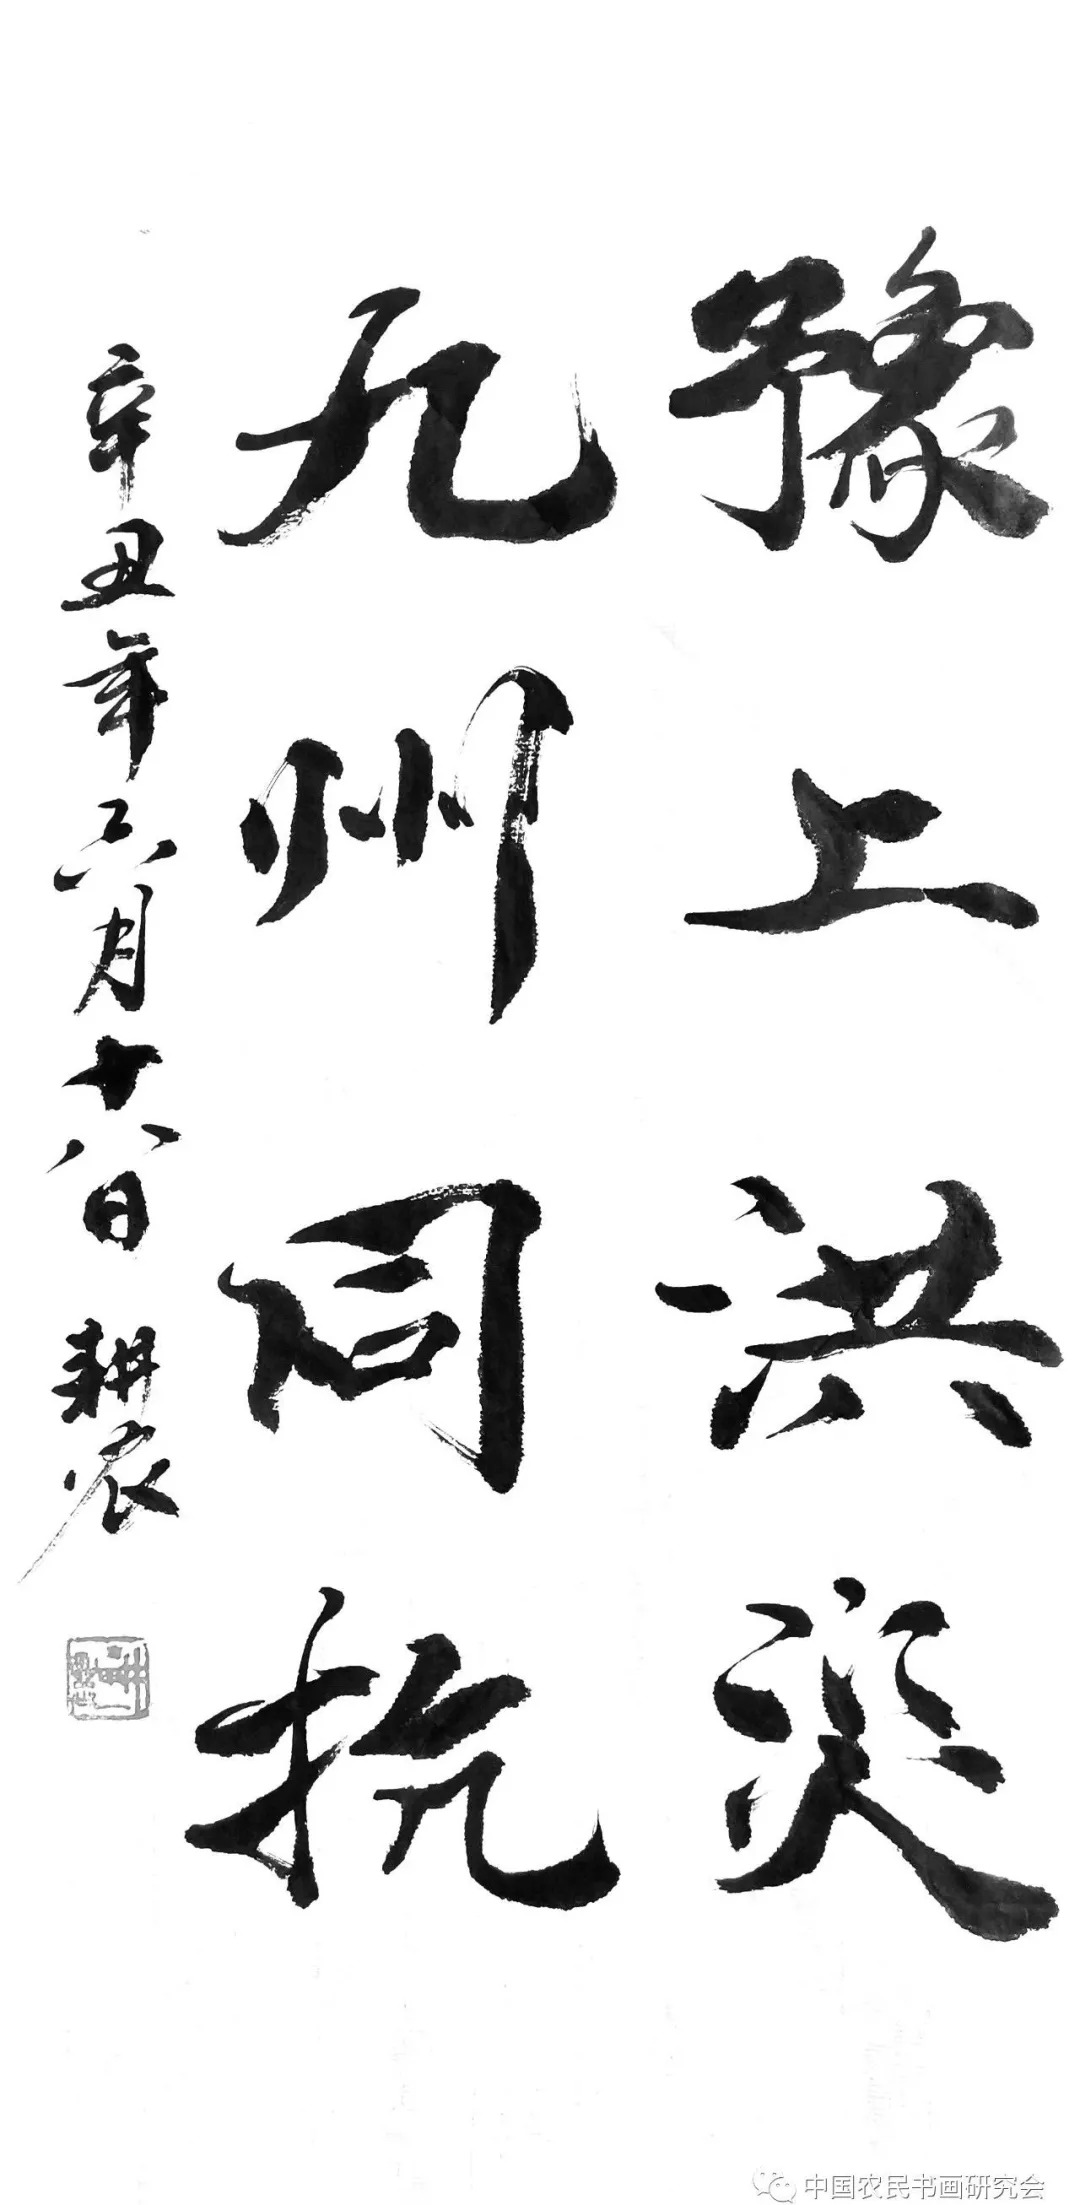 豫上洪灾
九州同抗
辛丑年六月十八日 耕农
中国农民书画研究会